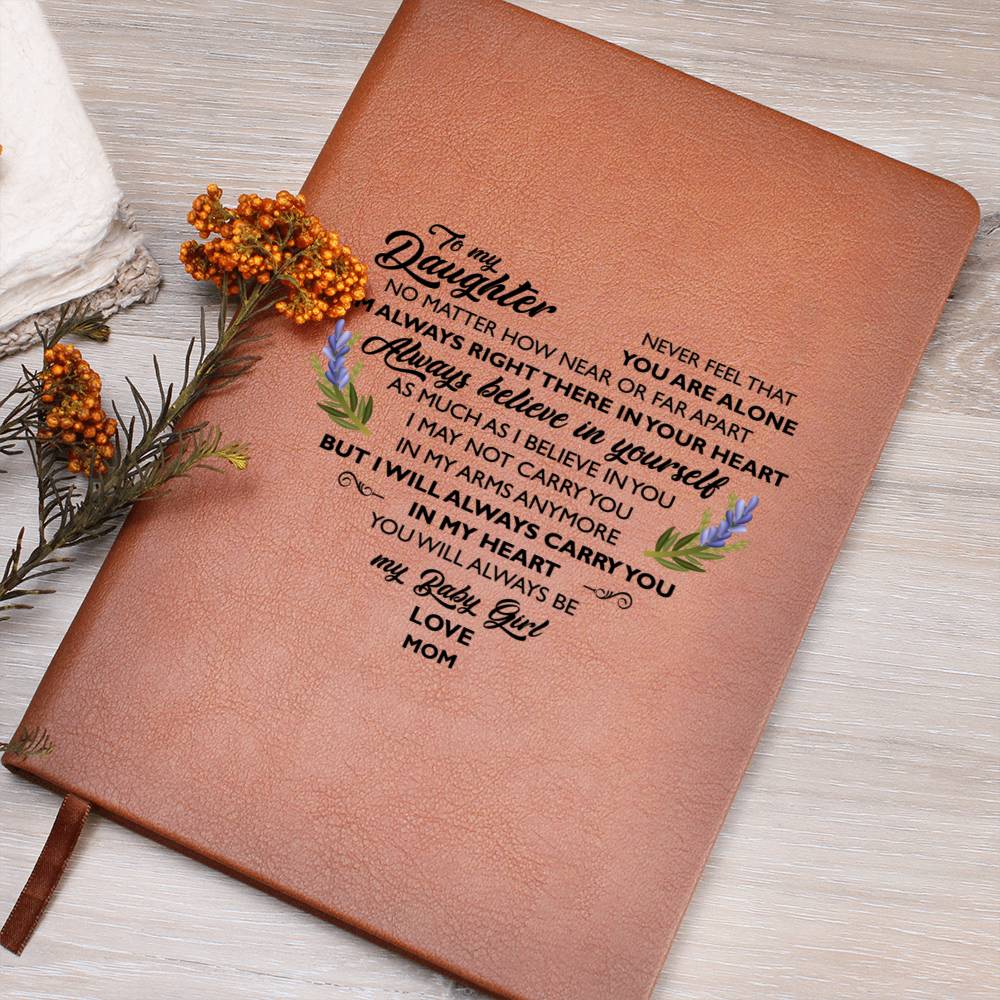 To my
Daughter
NEVER FEEL THAT
YOU ARE ALONE
NO MATTER HOW NEAR OR FAR APART
M ALWAYS RIGHT THERE IN YOUR HEART
Always believe in yourself
AS MUCH AS I BELIEVE IN YOU
I MAY NOT CARRY YOU
IN MY ARMS ANYMORE
BUT I WILL ALWAYS CARRY YOU
IN MY HEART
YOU WILL ALWAYS BE
my Baby Girl
LOVE
MOM